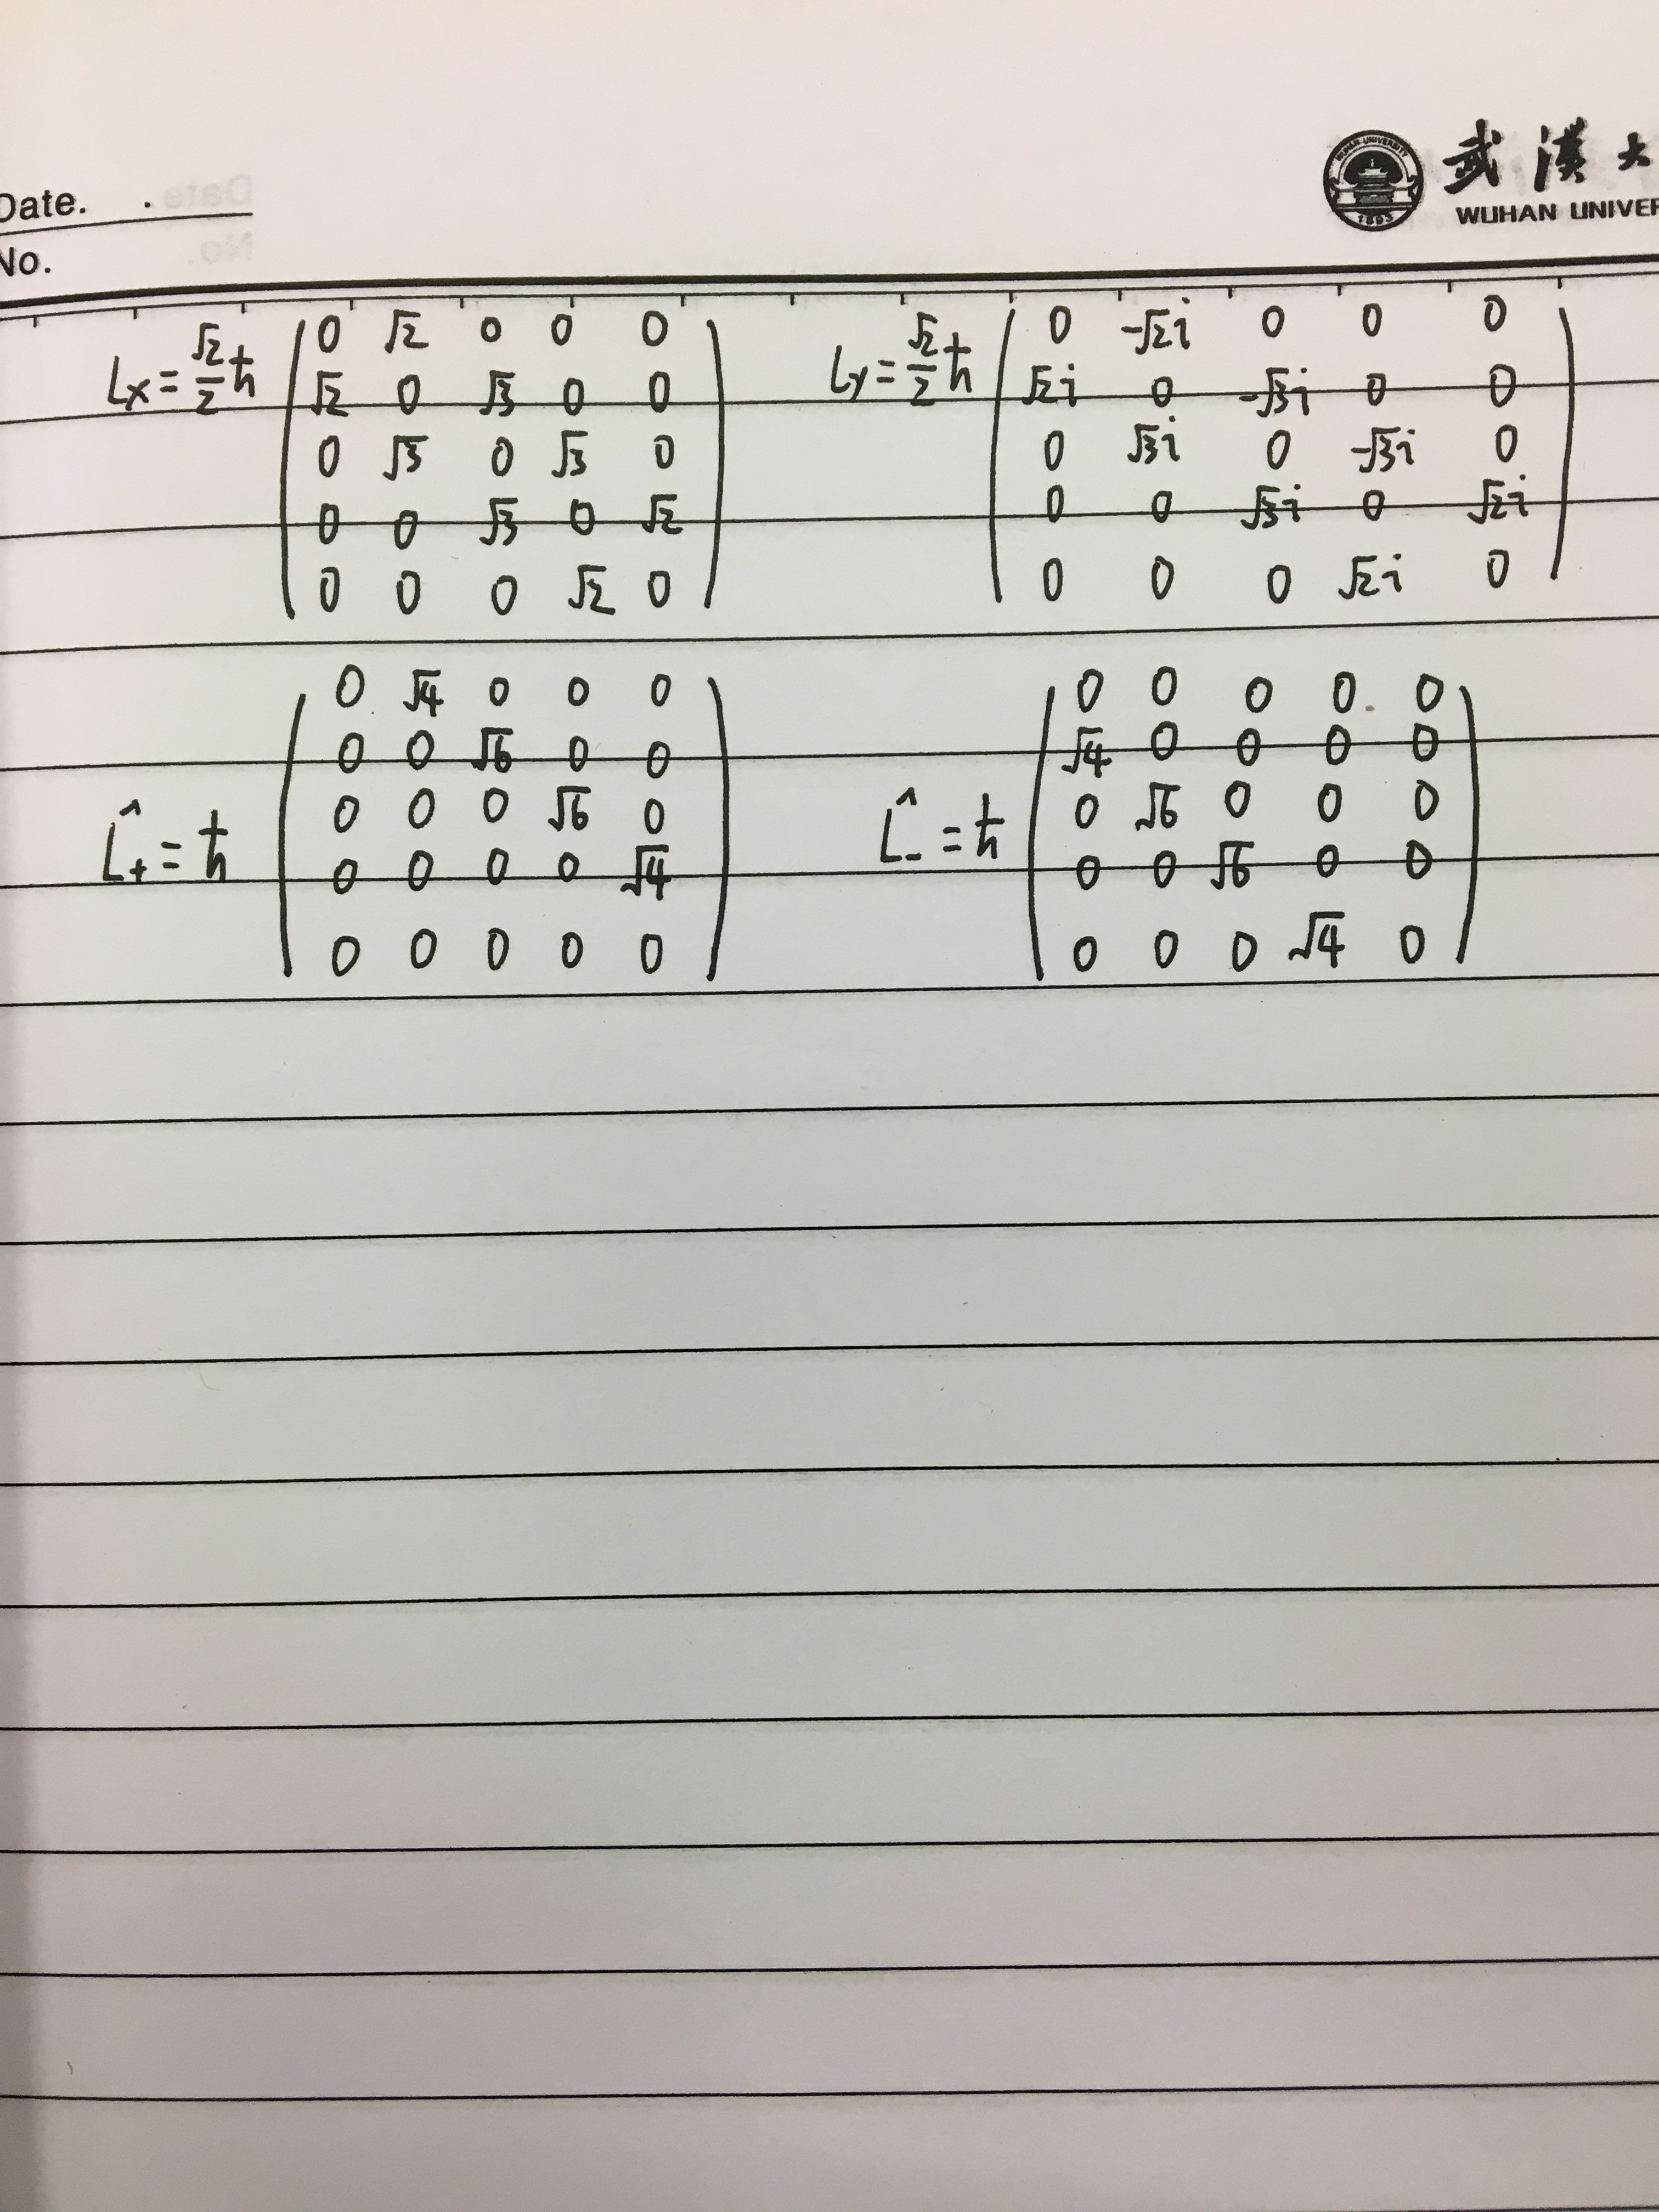 Date. .
No.
武漢大
WUHAN UNIVER
Lx = √2/2 ħ
0 √2 0 0 0
√2 0 √3 0 0
0 √3 0 √3 0
0 0 √3 0 √2
0 0 0 √2 0
Ly = √2/2 ħ
0 -√2i 0 0 0
√2i 0 -√3i 0 0
0 √3i 0 -√3i 0
0 0 √3i 0 √2i
0 0 0 √2i 0
L̂+ = ħ
0 √4 0 0 0
0 0 √6 0 0
0 0 0 √6 0
0 0 0 0 √4
0 0 0 0 0
L̂- = ħ
0 0 0 0 0
√4 0 0 0 0
0 √6 0 0 0
0 0 √6 0 0
0 0 0 √4 0